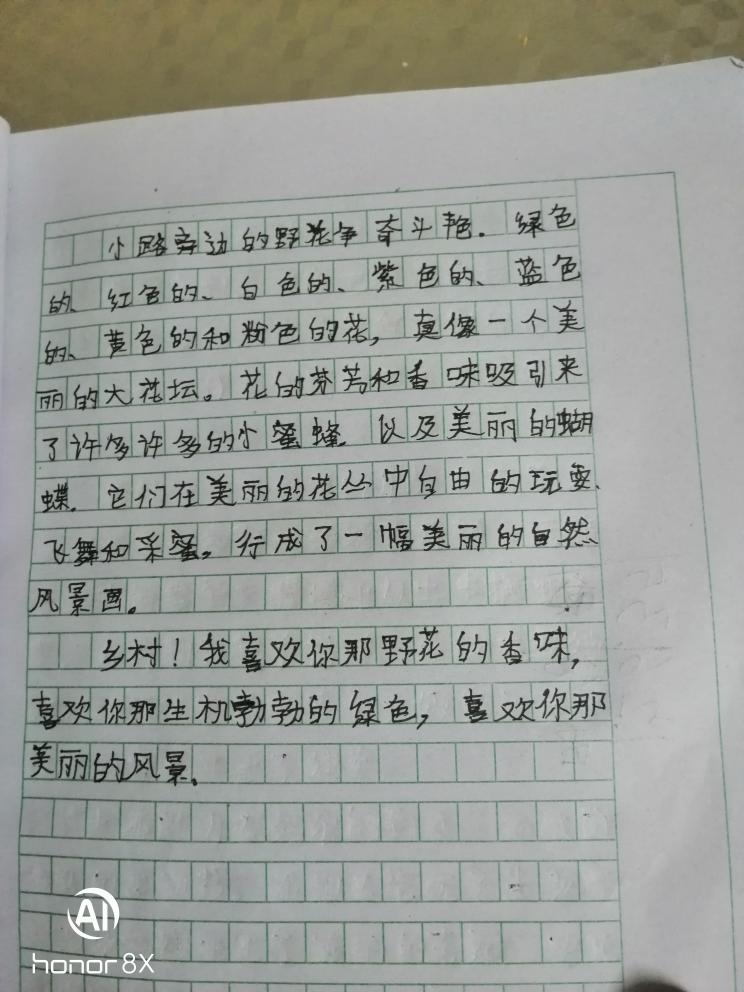 小路旁边的野花争奇斗艳.绿色
的、红色的、白色的、紫色的、蓝色
的、黄色的和粉色的花,真像一个美
丽的大花坛。花的芬芳和香味吸引来
了许多许多的小蜜蜂.以及美丽的蝴
蝶.它们在美丽的花丛中自由的玩耍、
飞舞和采蜜。行成了一幅美丽的自然
风景画。
乡村!我喜欢你那野花的香味,
喜欢你那生机勃勃的绿色,喜欢你那
美丽的风景、
AI
honor 8X